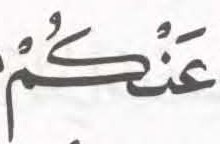 عَنْكُمْ